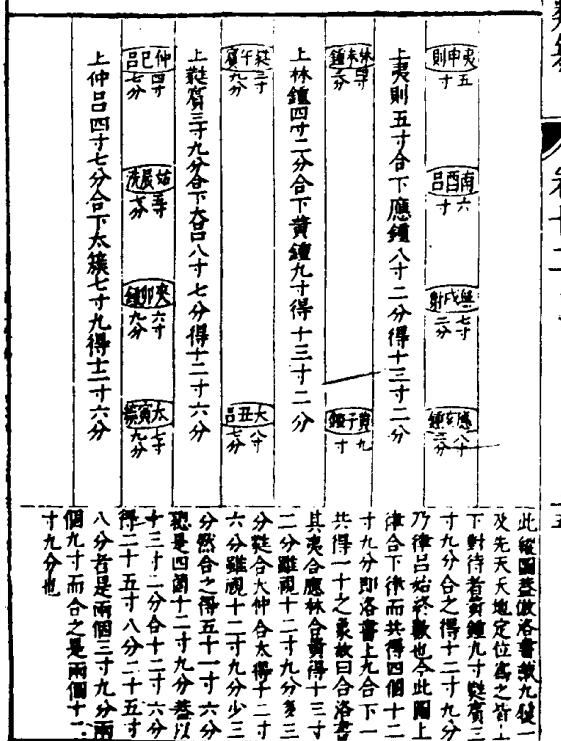 夷申則 五寸
南酉呂 六寸
無戌射 七寸二分
應亥鍾 八寸二分
上夷則五寸合下應鍾八寸二分得十三寸二分
林未鍾 四寸二分
黃子鍾 九寸
上林鍾四寸二分合下黃鍾九寸得十三寸二分
蕤午賓 三寸九分
大丑呂 八寸七分
上蕤賓三寸九分合下大呂八寸七分得十二寸六分
仲巳呂 四寸七分
姑辰洗
夾卯鍾 六寸九分
太寅簇 七寸九分
上仲呂四寸七分合下太簇七寸九得十二寸六分
此縱圖蓋倣洛書戴九履一
及先天天地定位為之皆上
下對待者黃鍾九寸蕤賓三
寸九分合之得十二寸九分
乃律呂始終數也今此圖上
律合下律而共得四個十二
寸九分即洛書上九合下一
共得一十之象故曰合洛書
其夷合應林合黃得十三寸
二分雖視十二寸九分多三
分蕤合大仲合太得十二寸
六分雖視十二寸九分少三
分然合之得五十一寸六分
總是四箇十二寸九分蓋以
十三寸二分合十二寸六分
得二十五寸八分二十五寸
八分者是兩個三寸九分兩
個九寸而合之是兩個十二
寸九分也